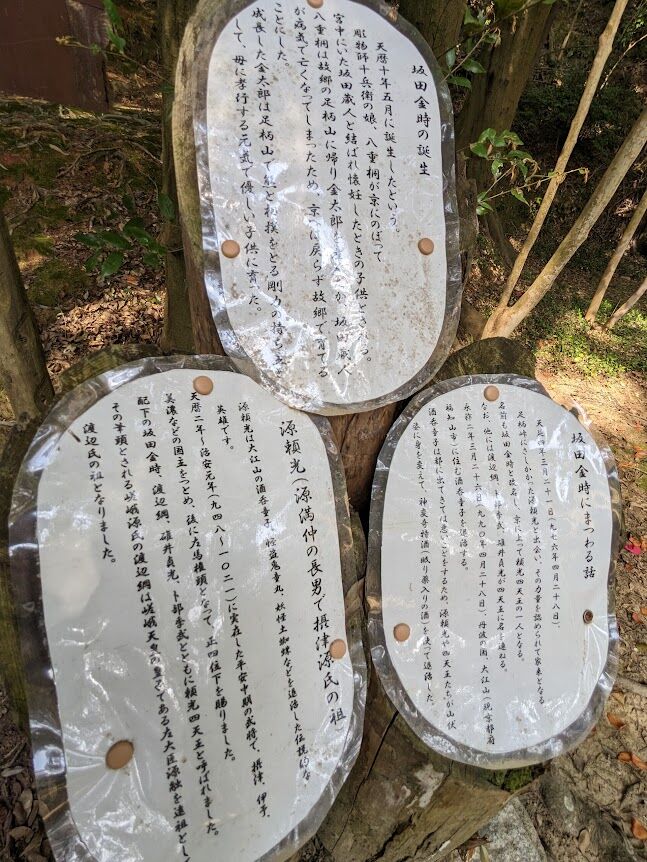 坂田金時の誕生
天暦十年五月に誕生したという。
彫物師十兵衛の娘、八重桐が京にのぼって
宮中にいた坂田蔵人と結ばれ懐妊したときの子供とされる。
八重桐は故郷の足柄山に帰り金太郎を 坂田蔵人
が病気で亡くなってしまったため、京へ戻らず故郷で育てる
ことにした。
成長した金太郎は足柄山で熊と相撲をとる剛力の持ち主
で、母に孝行する元気で優しい子供に育った。
坂田金時にまつわる話
天延四年三月二十一日(九七六年四月二十八日)、
足柄峠にさしかかった源頼光と出会い、その力量を認められて家来となる
名前も坂田金時と改名し、京に上って頼光四天王の一人となる。
なお、他には渡辺綱、卜部季武、碓井貞光が四天王に名を連ねる。
永祚二年三月二十六日(九九〇年四月二十八日)、丹波の国、大江山(現京都府
福知山市)に住む酒呑童子を退治する。
酒呑童子は都に出てきては悪いことをするため源頼光や四天王たちが山伏
姿に身を変えて、神変奇特酒(眠り薬入りの酒)を使って退治した。
源頼光(源満仲の長男で摂津源氏の祖
源頼光は大江山の酒呑童子、怪盗鬼童丸、妖怪土蜘蛛などを退治した伝説的な
英雄です。
天暦二年〜治安元年(九四八〜一〇二一)に実在した平安中期の武将で、摂津、伊予、
美濃などの国主をつとめ、後に左馬権頭となって、正四位下を賜りました。
配下の坂田金時、渡辺綱、碓井貞光、卜部季武とともに頼光四天王と呼ばれました。
その筆頭とされる嵯峨源氏の渡辺綱は嵯峨天皇の皇子である左大臣源融を遠祖とし
渡辺氏の祖となりました。